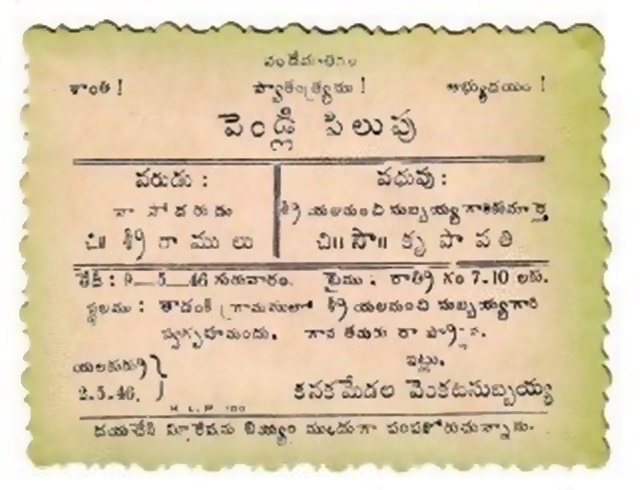 వందేమాతరం
శాంతి ! స్వాతంత్ర్యము ! అభ్యుదయం !
పెండ్లి పిలుపు
వరుడు : వధువు :
నా సోదరుడు శ్రీ యలమంచి సుబ్బయ్య గారికుమార్తె
చి॥ శ్రీ రా ము లు చి॥ సౌ॥ కృ పా వ తి
తేదీ : 9—5—46 గురువారం. టైము : రాత్రి గం 7-10 లకు.
స్థలము : తాడంకి గ్రామములో శ్రీ యలమంచి సుబ్బయ్యగారి
స్వగృహమందు. గాన తమరు రా
ఇట్లు.
2.5.46. కనకమేడల వెంకటసుబ్బయ్య
దయచేసి మీ రేషను బియ్యం ముందుగా పంపకోరుచున్నాను.